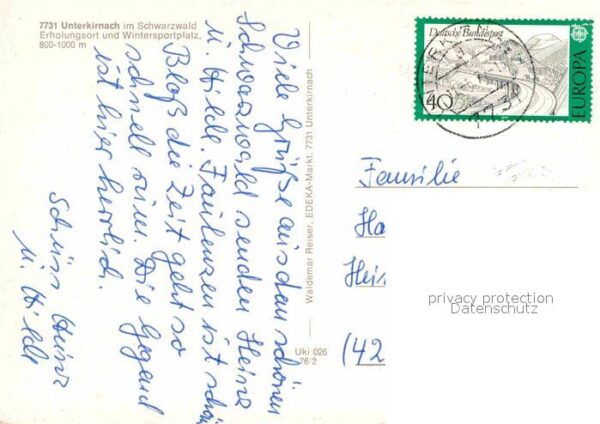 7731 Unterkirnach im Schwarzwald
Erholungsort und Wintersportplatz,
800-1000 m
Viele Grüße aus dem schönen
Schwarzwald senden Heinz
u. Hilde. Faulenzen ist schön
Bloß die Zeit geht so
schnell rum. Die Gegend
ist hier herrlich.
Schüss Heinz
u. Hilde
Waldemar Reiser, EDEKA-Markt, 7731 Unterkirnach
Uki 026
76 2
Deutsche Bundespost
40
EUROPA
Familie
Ha
Hein
(42
privacy protection
Datenschutz